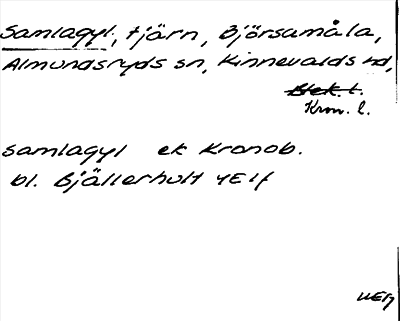 Samlagyl, tjärn, Björsamåla,
Almundsryds sn, Kinnevalds hd,
Blek. l.
Kron. l.
Samlagyl ek Kronob.
bl. Bjällerhult 4E1f